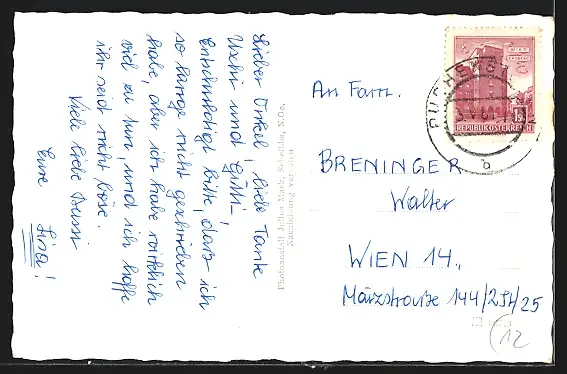 Lieber Onkel, liebe Tante
Uschi und Gitti!
Entschuldigt bitte, dass ich
so lange nicht geschrieben
habe, aber ich habe wirklich
viel zu tun, und ich hoffe
ihr seid nicht böse.
Viele liebe Bussi
Eure Lisa!
Nachahmung verboten
An Fam.
BRENINGER
Walter
WIEN 14.,
Märzstraße 144/2St/25
12
WIEN
REPUBLIK ÖSTERREICH
b